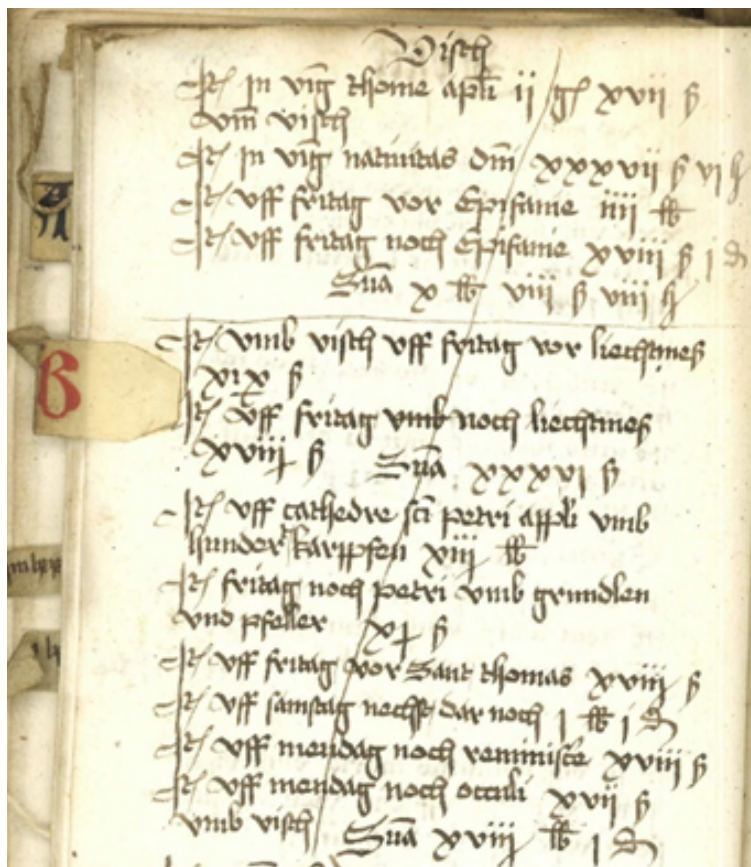 Visch
It in vig thome apli ii g xvii ß
vm visch
It in vig nativitas dm xxxvii ß vi h
It uff fritag vor Epifanie iiii lb
It uff fritag noch Epifanie xviii ß i d
Sua x lb viii ß viii h
It vmb visch uff fritag vor liechtmes
xix ß
It vff fritag vmb noch liechtmes
xviij ß Sua xxxvi ß
It uff cathedre sci petri appli vmb
hunder karppfen xiij lb
It fritag noch petri vmb grundlen
vnd pfeller xj ß
It uff fritag vor Sant thomas xviij ß
It uff samstag nechst dar noch i lb i d
It uff mendag noch reminisce xviii ß
It uff mendag noch occuli xvij ß
vmb visch Sua xviij lb i d